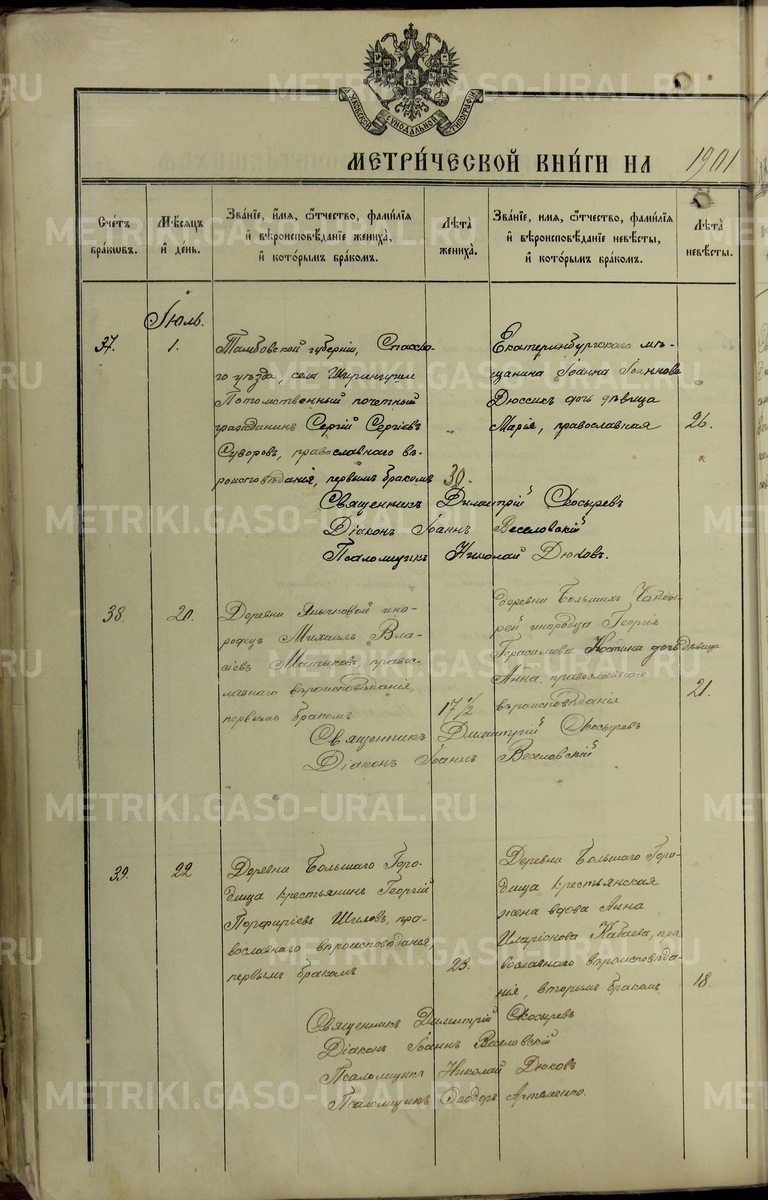 УКОВСКОЙ СѴНОДАЛЬНОЙ ТИПОГРАФІИ
МЕТРИ́ЧЕСКОЙ КНИ́ГИ НА 1901
Сче́тъ бра́ковъ.
Мѣ́сяцъ и҆ де́нь.
Зва́нїе, и҆́мя, ѻ҆́тчество, фами́лїя
и҆ вѣроисповѣ́данїе жениха̀,
и҆ кото́рымъ бра́комъ.
Лѣ́та жениха̀.
Зва́нїе, и҆́мя, ѻ҆́тчество, фами́лїя
и҆ вѣроисповѣ́данїе невѣ́сты,
и҆ кото́рымъ бра́комъ.
Лѣ́та невѣ́сты.
Іюль.
37.
1.
Тамбовской губерніи, Спасска-
го уѣзда, села
Потомственный почетный
гражданинъ Сергій Сергіевъ
Суворовъ, православнаго вѣ-
роисповѣданія, первымъ бракомъ
30.
Екатеринбургскаго мѣ-
щанина Іоанна Іоаннова
Дюссикъ дочь дѣвица
Марія, православная
26.
Священникъ Димитрій Скосыревъ
Діаконъ Іоаннъ Веселовскій
Псаломщикъ Николай Дюковъ.
38.
20.
Деревни Языковой ино-
родецъ Михаилъ Вла-
сіевъ Матыковъ, правос-
лавнаго вѣроисповѣданія,
первымъ бракомъ
17 1/2
деревни Большихъ
инородца Георгія
Герасимова Костина дочь дѣвица
Анна, православнаго
вѣроисповѣданія
21.
Священникъ Димитрій Скосыревъ
Діаконъ Іоаннъ Веселовскій
39.
22
Деревни Большаго Горо-
дища крестьянинъ Георгій
Порфиріевъ Шиловъ, пра-
вославнаго вѣроисповѣданія
первымъ бракомъ
23.
Деревни Большаго Горо-
дища крестьянская
жена вдова Анна
Иларіонова Кабаева, пра
вославнаго вѣроисповѣда-
нія, вторымъ бракомъ
18.
Священникъ Димитрій Скосыревъ
Діаконъ Іоаннъ Веселовскій
Псаломщикъ Николай Дюковъ
Псаломщикъ Ѳеодоръ Артеменко.
METRIKI.GASO-URAL.RU